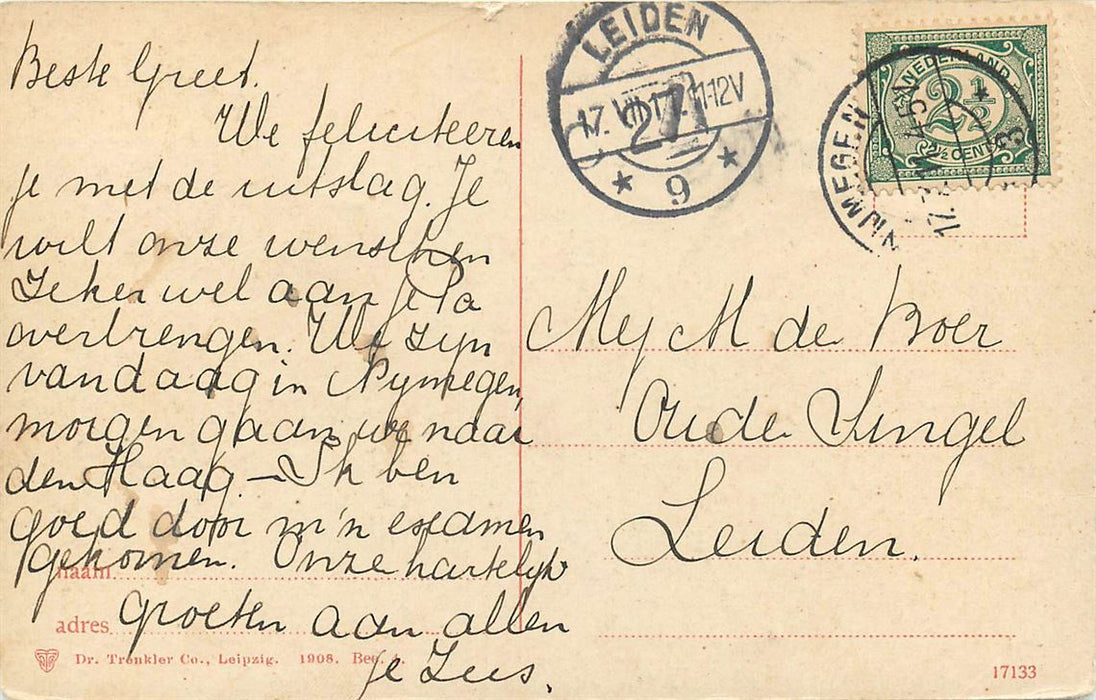 Beste Greet.
We feliciteeren
je met de uitslag. Je
wilt onze wenschen
zeker wel aan je Pa
overbrengen. We zijn
vandaag in Nijmegen,
morgen gaan we naar
den Haag – Ik ben
goed door m'n examen
gekomen. Onze hartelijke
groeten aan allen
je Zus.
naam
adres
Dr. Trenkler Co., Leipzig. 1908. Bee.
LEIDEN
17. VII 11-12V
9
NEDERLAND
2½
2½ CENT
NIJMEGEN
3
Mej M de Boer
Oude Singel
Leiden.
17133